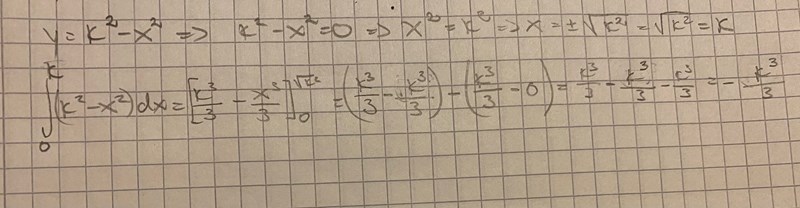 y = k² - x² => k² - x² = 0 => x² = k² => x = ±√k² = √k² = k
∫₀ᵏ (k² - x²) dx = [k³/3 - x³/3]₀^√k² = (k³/3 - k³/3) - (k³/3 - 0) = k³/3 - k³/3 - k³/3 = - k³/3